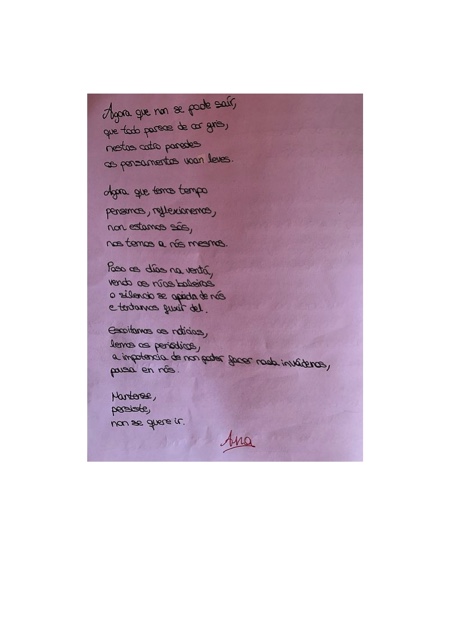 Agora que non se pode saír,
que todo parece de cor gris,
nestas catro paredes
os pensamentos voan leves.
Agora que temos tempo
pensemos, reflexionemos,
non estamos sós,
nos temos a nós mesmos.
Paso os días na ventá,
vendo as rúas baleiras
o silencio se apoda de nós
e tentamos fuxir del.
Escoitamos as noticias,
lemos os periódicos,
a impotencia de non poder facer nada invádenos,
pousa en nós.
Mantense,
persiste,
non se quere ir.
Ana